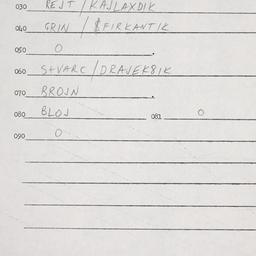 030 REJT / KAJLAXDIK
040 GRIN / FIRKANTIK
050 O
060 SHVARC / DRAJEKSIK
070 BROJN
080 BLOJ 081 O
090 O